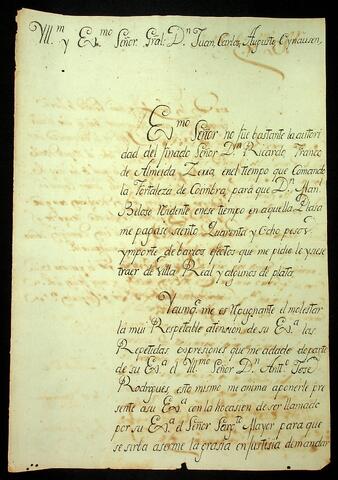 Yll.m y Ex.mo Señor Gral: D.n Juan Carlos Augusto Oynausen,
Ex.mo Señor no fue bastante la autori
dad del finado Señor D.n Ricardo Franco
de Almeida Zerra, enel tiempo que Comando
la Fortaleza de Coimbra, para que D.n Man.l
Beloso Residente enese tiempo en aquella Plasa
me pagase siento Quarenta y Ocho pesos
ymporte de barios efectos que me pidio le ysiese
traer de Villa Real y algunos de plata.
Yaunq.e me es Repugnante el molestar
la mui Respetable atension de su Ex.a las
Repetidas expresiones que me adado departe
de su Ex.a el Yll.mo Señor D.n Ant.o José
Rodrigues esto mismo me anima aponerle pre
sente asu Ex.a con la hocasion de ser llamado
por su Ex.a el Señor Sarg.to Mayor para que
se sirba aserme la grasia en justisia demandar